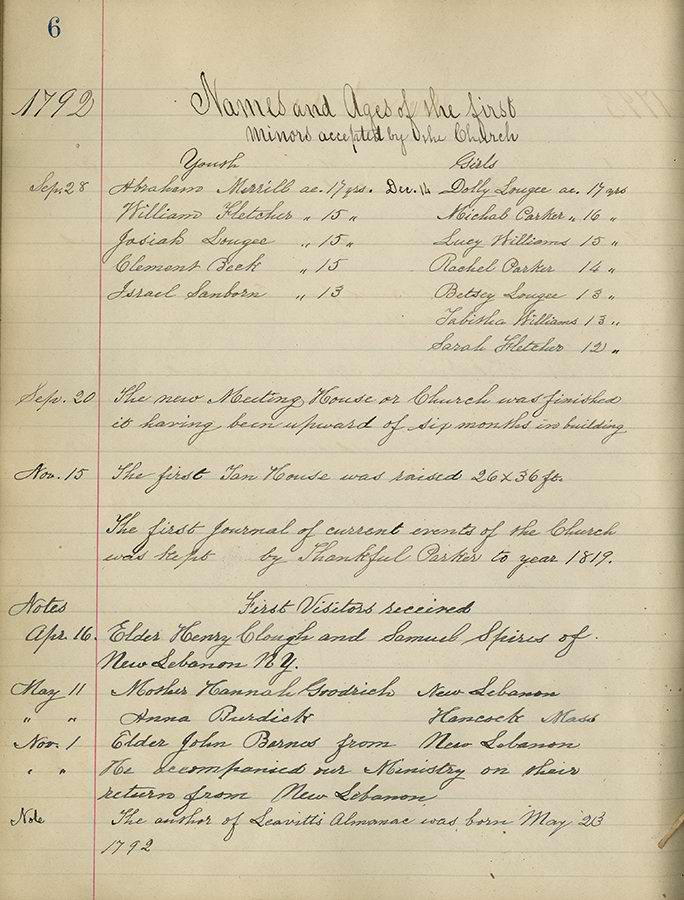 6
1792 Names and Ages of the first
minors accepted by the Church
Youth Girls
Sep. 28 Abraham Merrill ae. 17 yrs. Dec. 14 Dolly Lougee ae. 17 yrs
William Fletcher „ 15 „ Michal Parker „ 16 „
Josiah Lougee „ 15 „ Lucy Williams 15 „
Clement Beck „ 15 Rachel Parker 14 „
Israel Sanborn „ 13 Betsey Lougee 13 „
Tabitha Williams 13 „
Sarah Fletcher 12 „
Sep. 20 The new Meeting House or Church was finished
it having been upward of six months in building
Nov. 15 The first Tan House was raised 26x36 ft.
The first Journal of current events of the Church
was kept by Thankful Parker to year 1819.
Notes First Visitors received
Apr. 16. Elder Henry Clough and Samuel Spires of
New Lebanon N.Y.
May 11 Mother Hannah Goodrich New Lebanon
„ „ Anna Burdick Hancock Mass
Nov. 1 Elder John Barnes from New Lebanon
„ „ He accompanied our Ministry on their
return from New Lebanon
Note The author of Leavitts Almanac was born May 23
1792